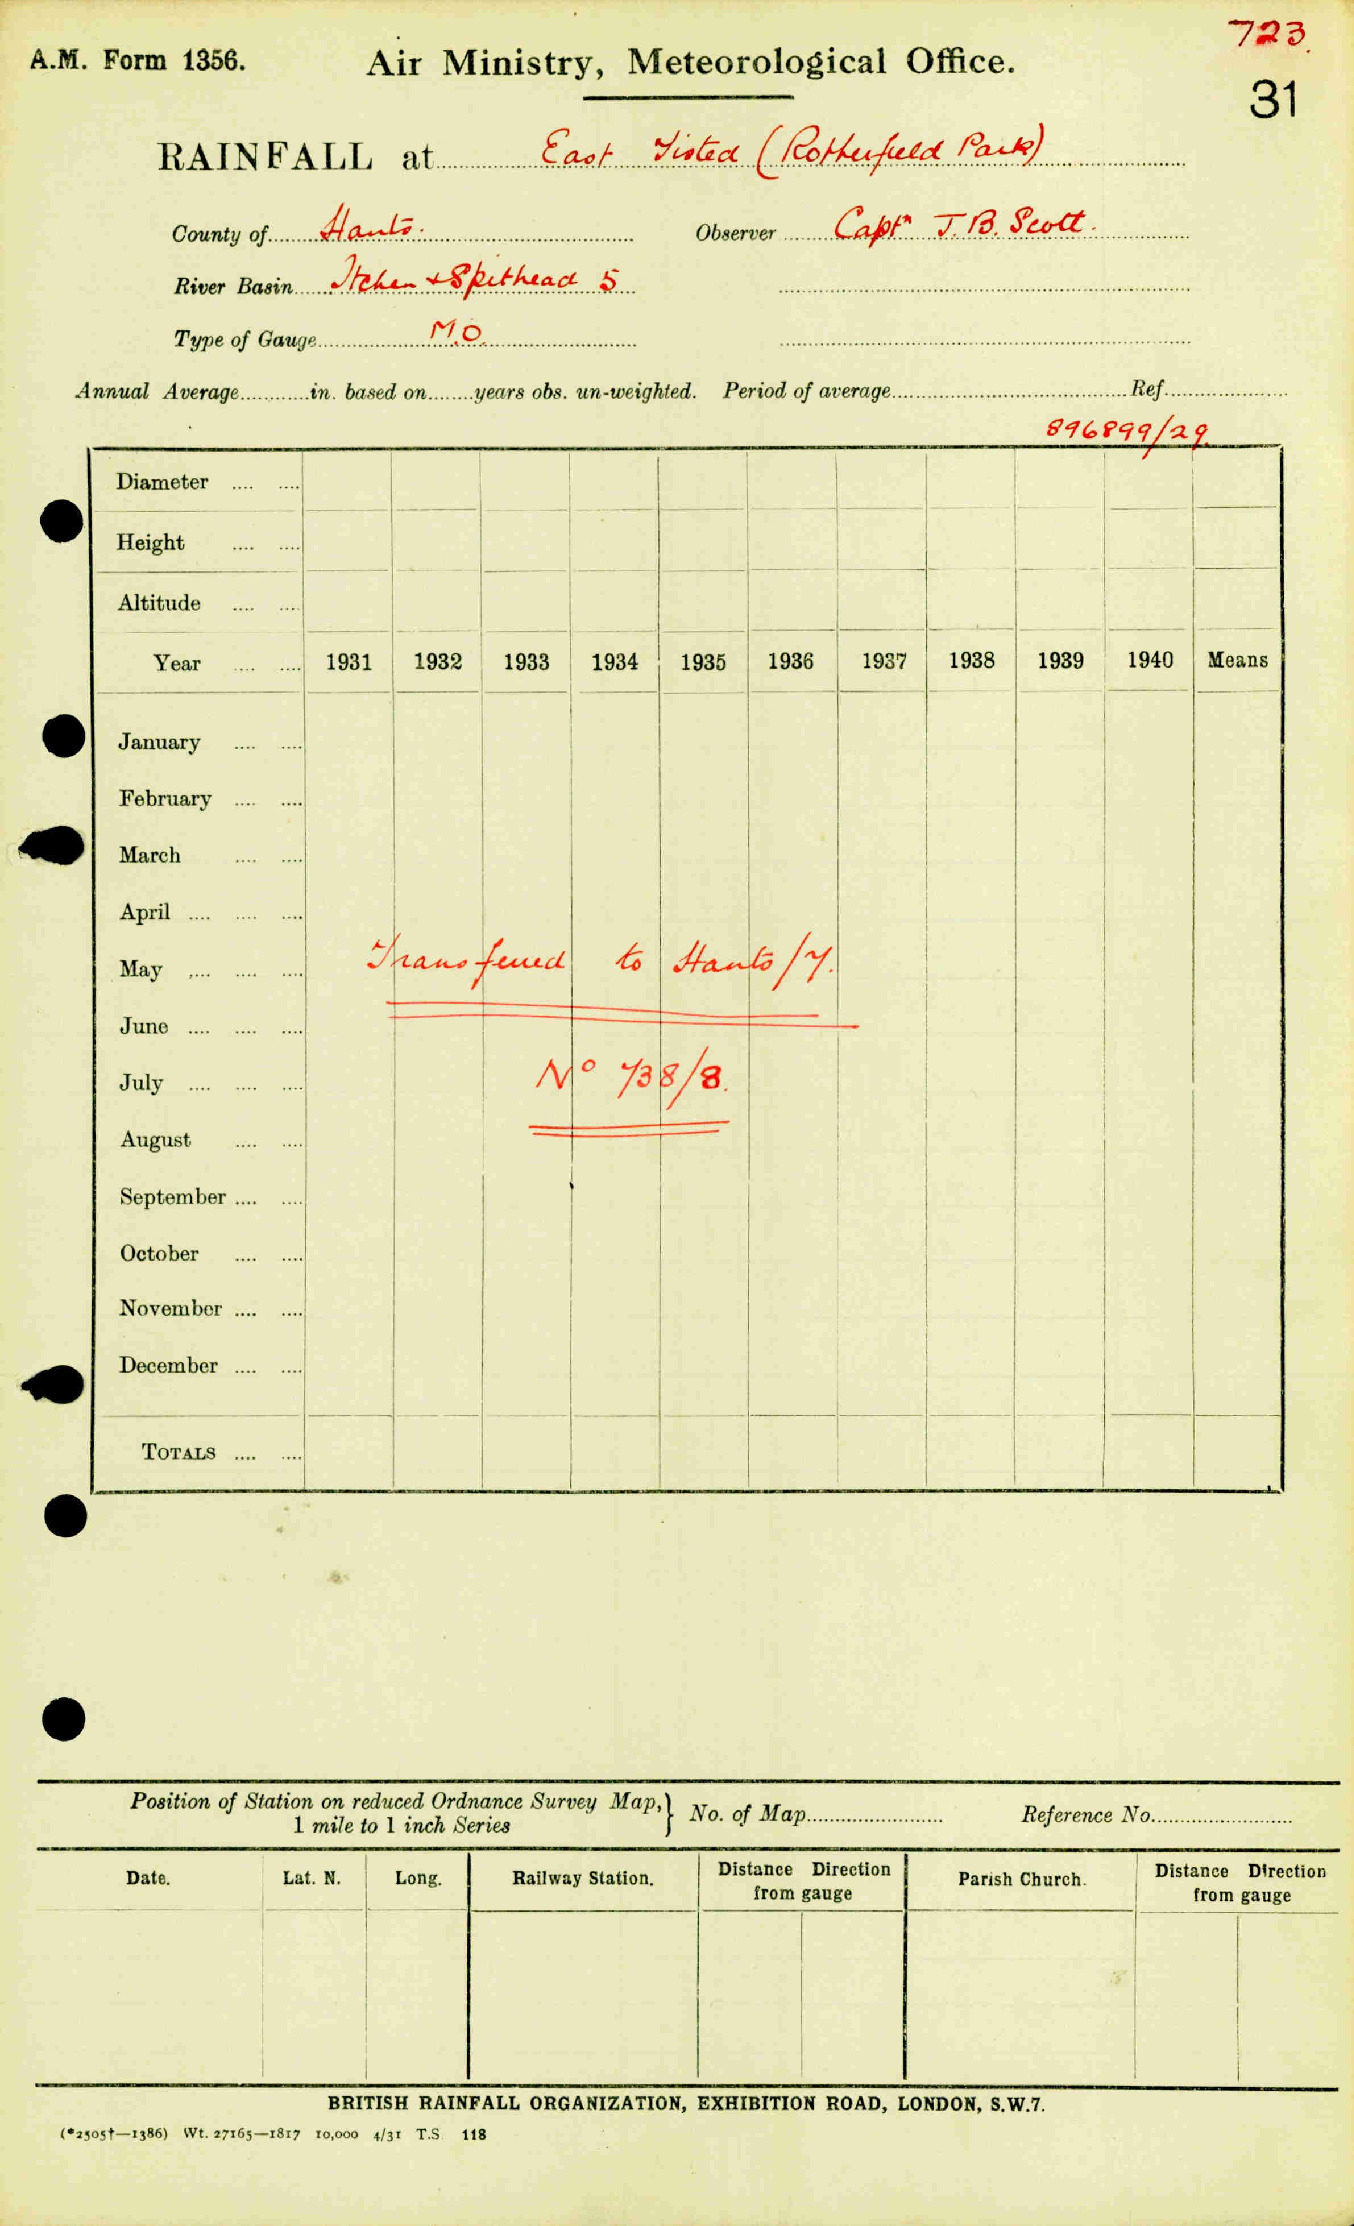 723.
A.M. Form 1356. Air Ministry, Meteorological Office.
31
RAINFALL at East Tisted (Rotherfield Park)
County of Hants. Observer Captn J. B. Scott.
River Basin Itchen + Spithead 5
Type of Gauge M.O.
Annual Average in. based on years obs. un-weighted. Period of average Ref.
896899/29.
Diameter
Height
Altitude
Year 1931 1932 1933 1934 1935 1936 1937 1938 1939 1940 Means
January
February
March
April
May
Transferred to Hants/7.
June
July
No 738/8.
August
September
October
November
December
TOTALS
Position of Station on reduced Ordnance Survey Map, } No. of Map Reference No.
1 mile to 1 inch Series
Date. Lat. N. Long. Railway Station. Distance Direction Parish Church. Distance Direction
from gauge from gauge
BRITISH RAINFALL ORGANIZATION, EXHIBITION ROAD, LONDON, S.W.7.
(*2505†—1386) Wt. 27165—1817 10,000 4/31 T.S. 118